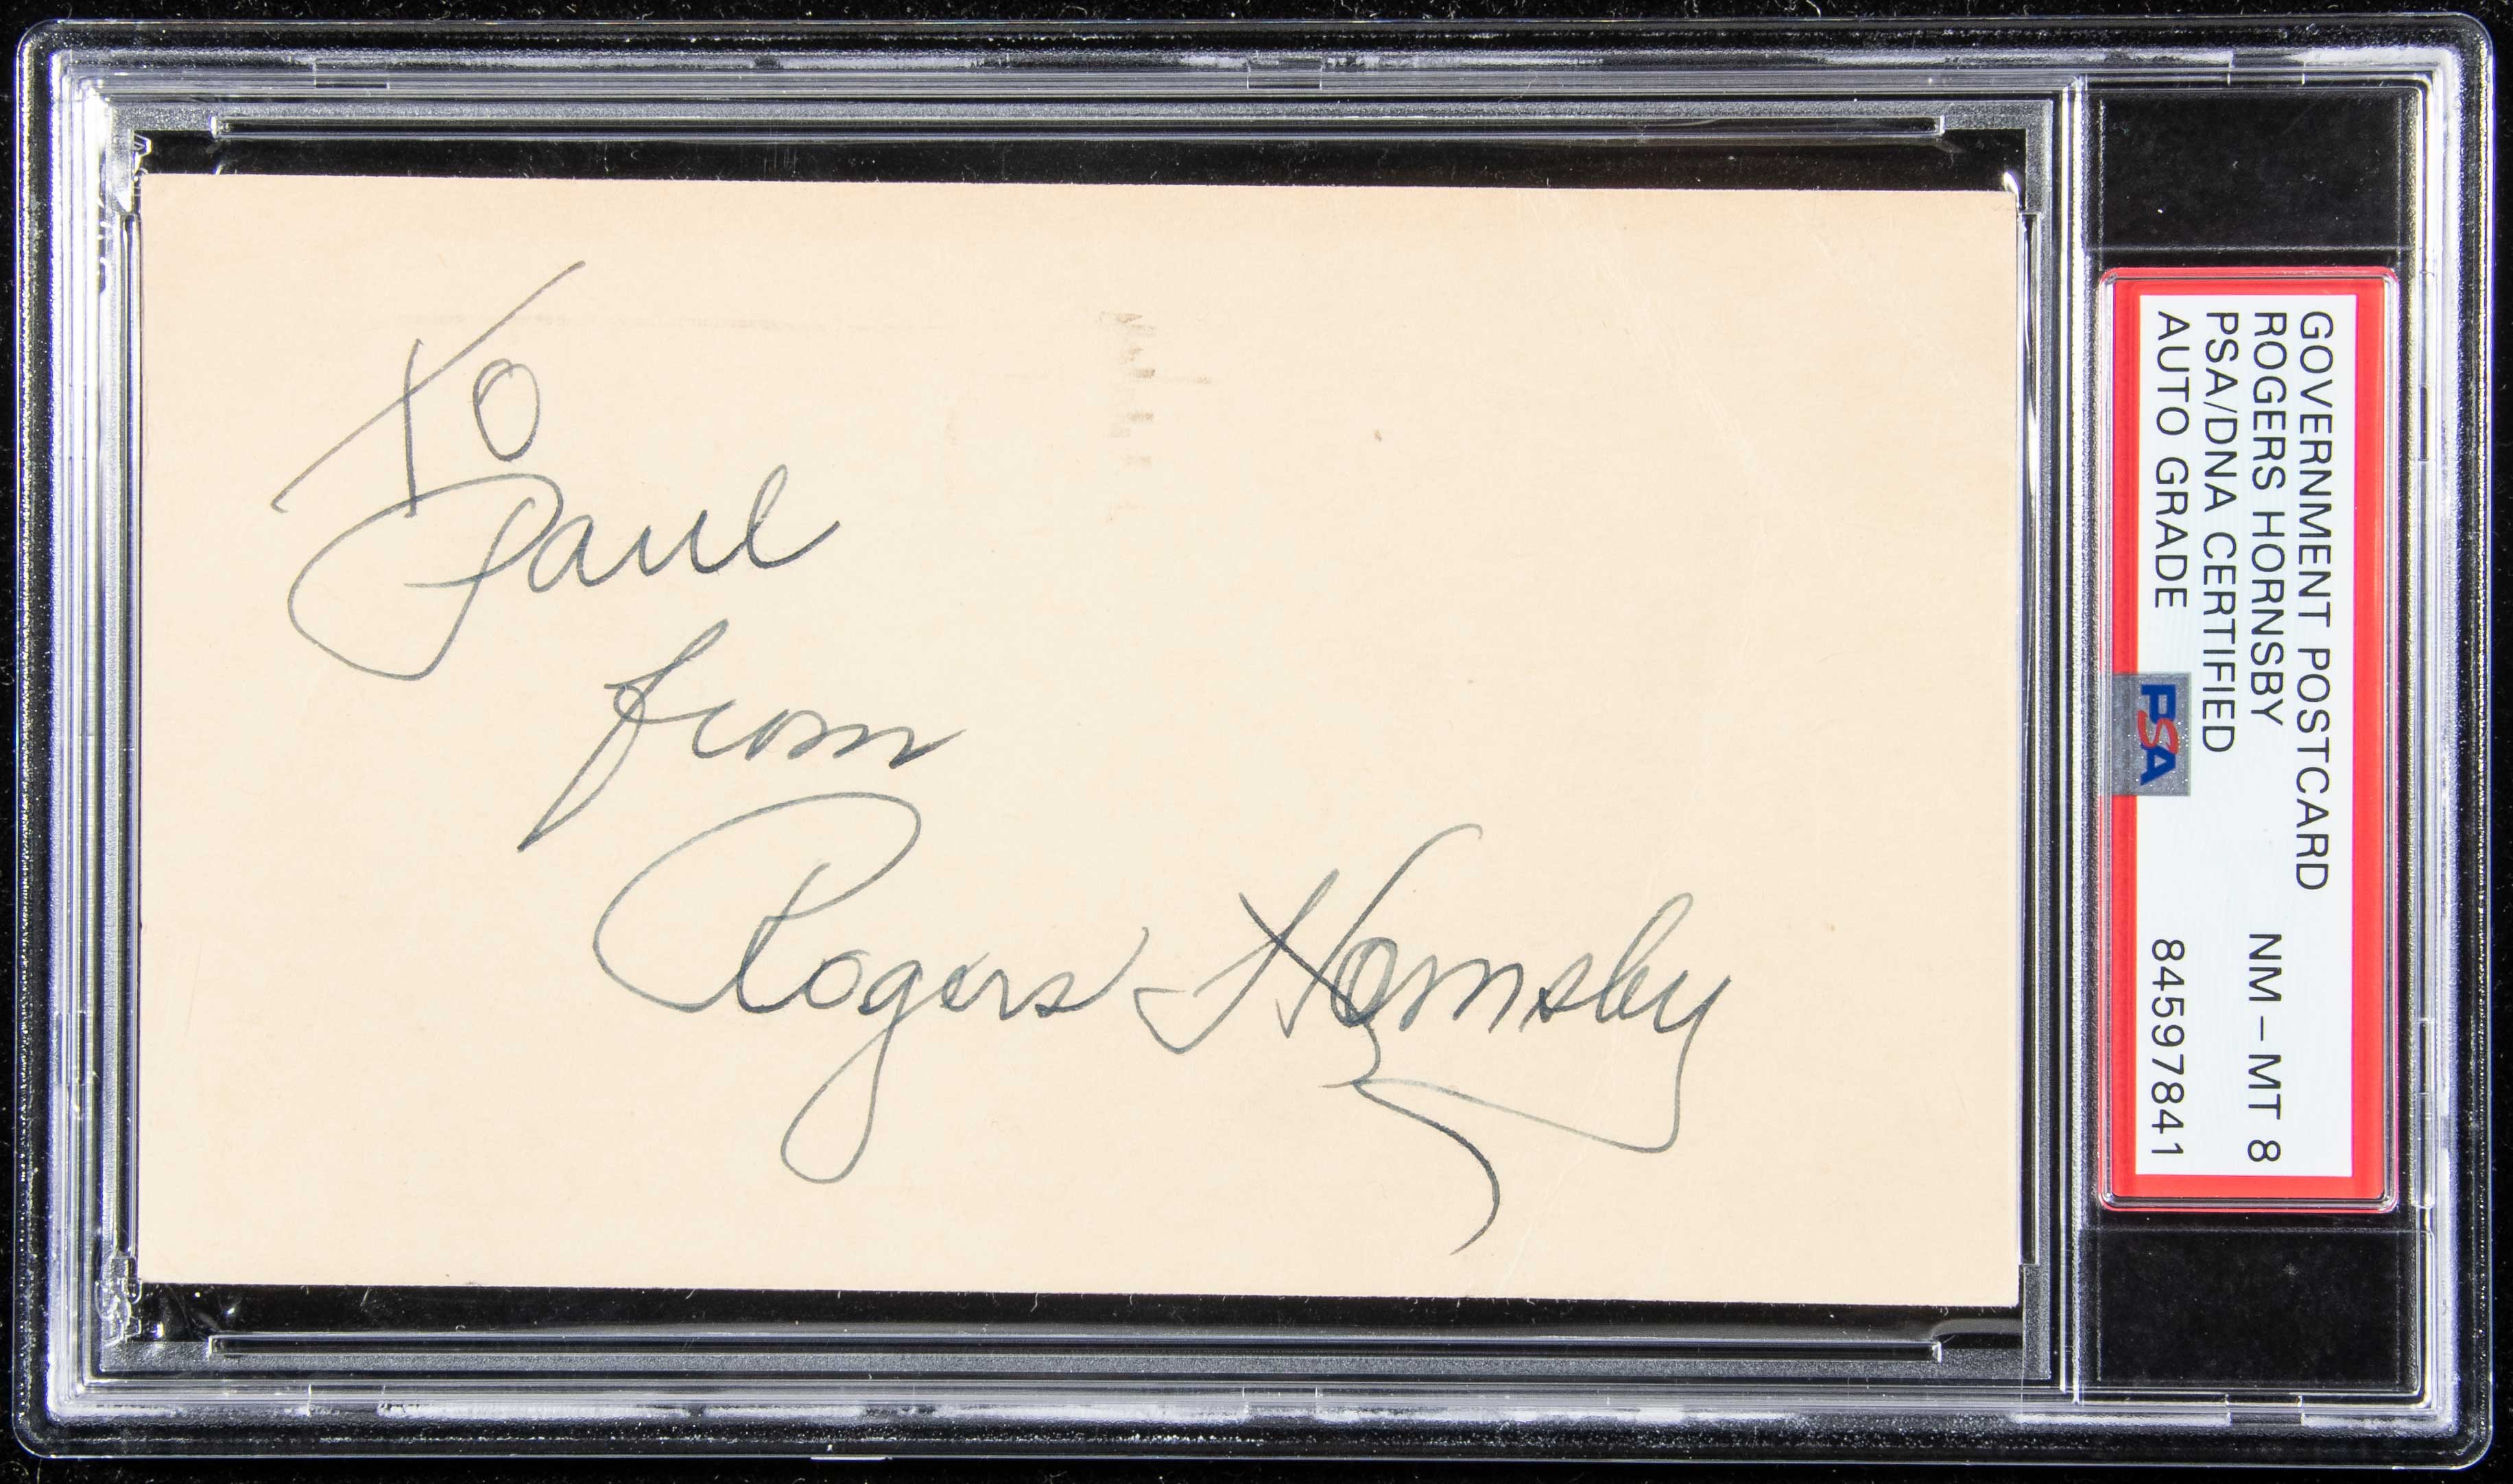 To
Paul
from
Rogers Hornsby
GOVERNMENT POSTCARD
ROGERS HORNSBY NM-MT 8
PSA/DNA CERTIFIED
AUTO GRADE 84597841
PSA